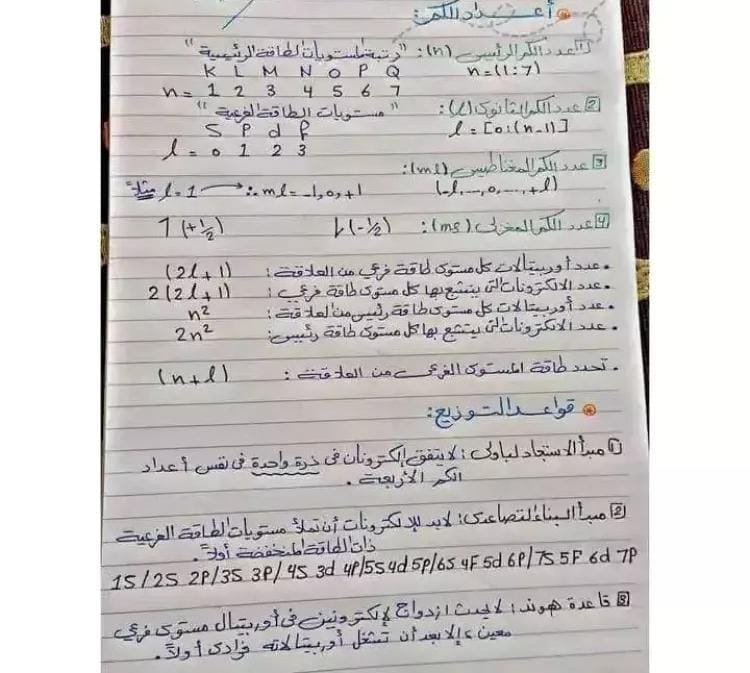 أعداد الكم:
[1] عدد الكم الرئيسي (n): "رتبة مستويات الطاقة الرئيسية"
K L M N O P Q
n = (1:7)
n = 1 2 3 4 5 6 7
[2] عدد الكم الثانوى (l): "مستويات الطاقة الفرعية"
S P d f
l = [0:(n-1)]
l = 0 1 2 3
[3] عدد الكم المغناطيسى (ml):
(-l,...,0,...,+l)
مثلاً l=1 → ∴ ml = -1,0,+1
[4] عدد الكم المغزلى (ms): ↓(-½) ↑(+½)
• عدد أوربيتالات كل مستوى طاقة فرعي من العلاقة: (2l+1)
• عدد الالكترونات التى يتشبع بها كل مستوى طاقة فرعي: 2(2l+1)
• عدد أوربيتالات كل مستوى طاقة رئيسى من العلاقة: n²
• عدد الالكترونات التى يتشبع بها كل مستوى طاقة رئيسى: 2n²
• تحدد طاقة المستوى الفرعى من العلاقة: (n+l)
قواعد التوزيع:
(1) مبدأ الاستبعاد لباولى: لا يتفق إلكترونان فى ذرة واحدة فى نفس أعداد
الكم الأربعة.
[2] مبدأ البناء التصاعدى: لابد للإلكترونات أن تملأ مستويات الطاقة الفرعية
ذات الطاقة المنخفضة أولاً.
1S/2S 2P/3S 3P/4S 3d 4P/5S 4d 5P/6S 4F 5d 6P/7S 5F 6d 7P
[3] قاعدة هوند: لا يحدث ازدواج لإلكترونين فى أوربيتال مستوى فرعي
معين إلا بعد أن تشغل أوربيتالاته فرادى أولاً.